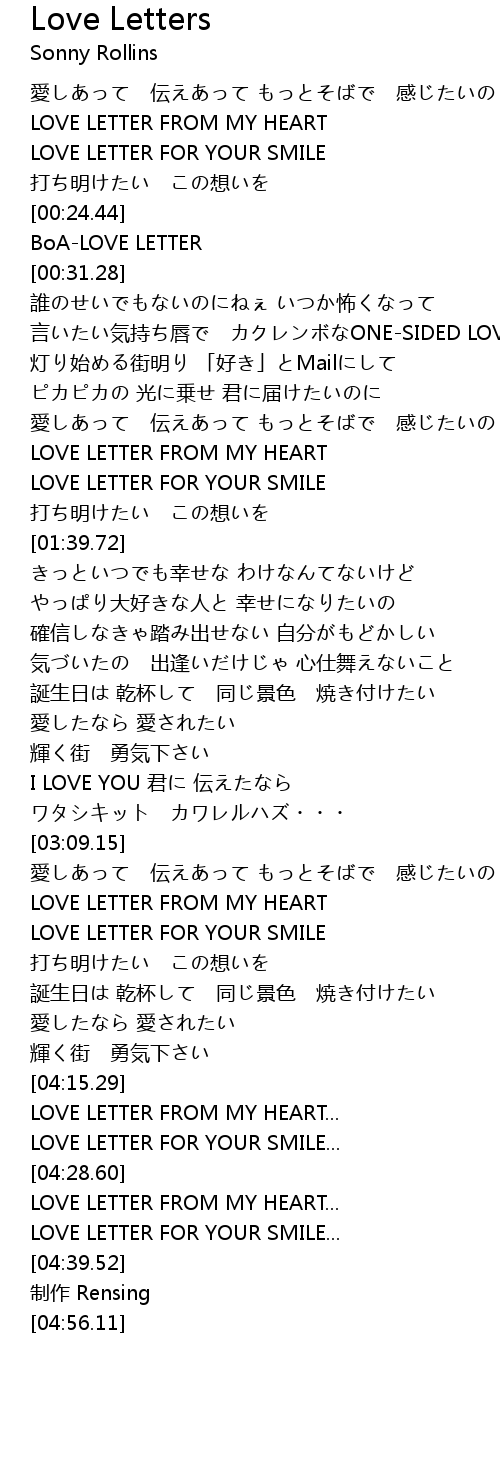 Love Letters
Sonny Rollins
愛しあって　伝えあって もっとそばで　感じたいの
LOVE LETTER FROM MY HEART
LOVE LETTER FOR YOUR SMILE
打ち明けたい　この想いを
[00:24.44]
BoA-LOVE LETTER
[00:31.28]
誰のせいでもないのにねぇ いつか怖くなって
言いたい気持ち唇で　カクレンボなONE-SIDED LOV
灯り始める街明り 「好き」とMailにして
ピカピカの 光に乗せ 君に届けたいのに
愛しあって　伝えあって もっとそばで　感じたいの
LOVE LETTER FROM MY HEART
LOVE LETTER FOR YOUR SMILE
打ち明けたい　この想いを
[01:39.72]
きっといつでも幸せな わけなんてないけど
やっぱり大好きな人と 幸せになりたいの
確信しなきゃ踏み出せない 自分がもどかしい
気づいたの　出逢いだけじゃ 心仕舞えないこと
誕生日は 乾杯して　同じ景色　焼き付けたい
愛したなら 愛されたい
輝く街　勇気下さい
I LOVE YOU 君に 伝えたなら
ワタシキット　カワレルハズ・・・
[03:09.15]
愛しあって　伝えあって もっとそばで　感じたいの
LOVE LETTER FROM MY HEART
LOVE LETTER FOR YOUR SMILE
打ち明けたい　この想いを
誕生日は 乾杯して　同じ景色　焼き付けたい
愛したなら 愛されたい
輝く街　勇気下さい
[04:15.29]
LOVE LETTER FROM MY HEART...
LOVE LETTER FOR YOUR SMILE...
[04:28.60]
LOVE LETTER FROM MY HEART...
LOVE LETTER FOR YOUR SMILE...
[04:39.52]
制作 Rensing
[04:56.11]